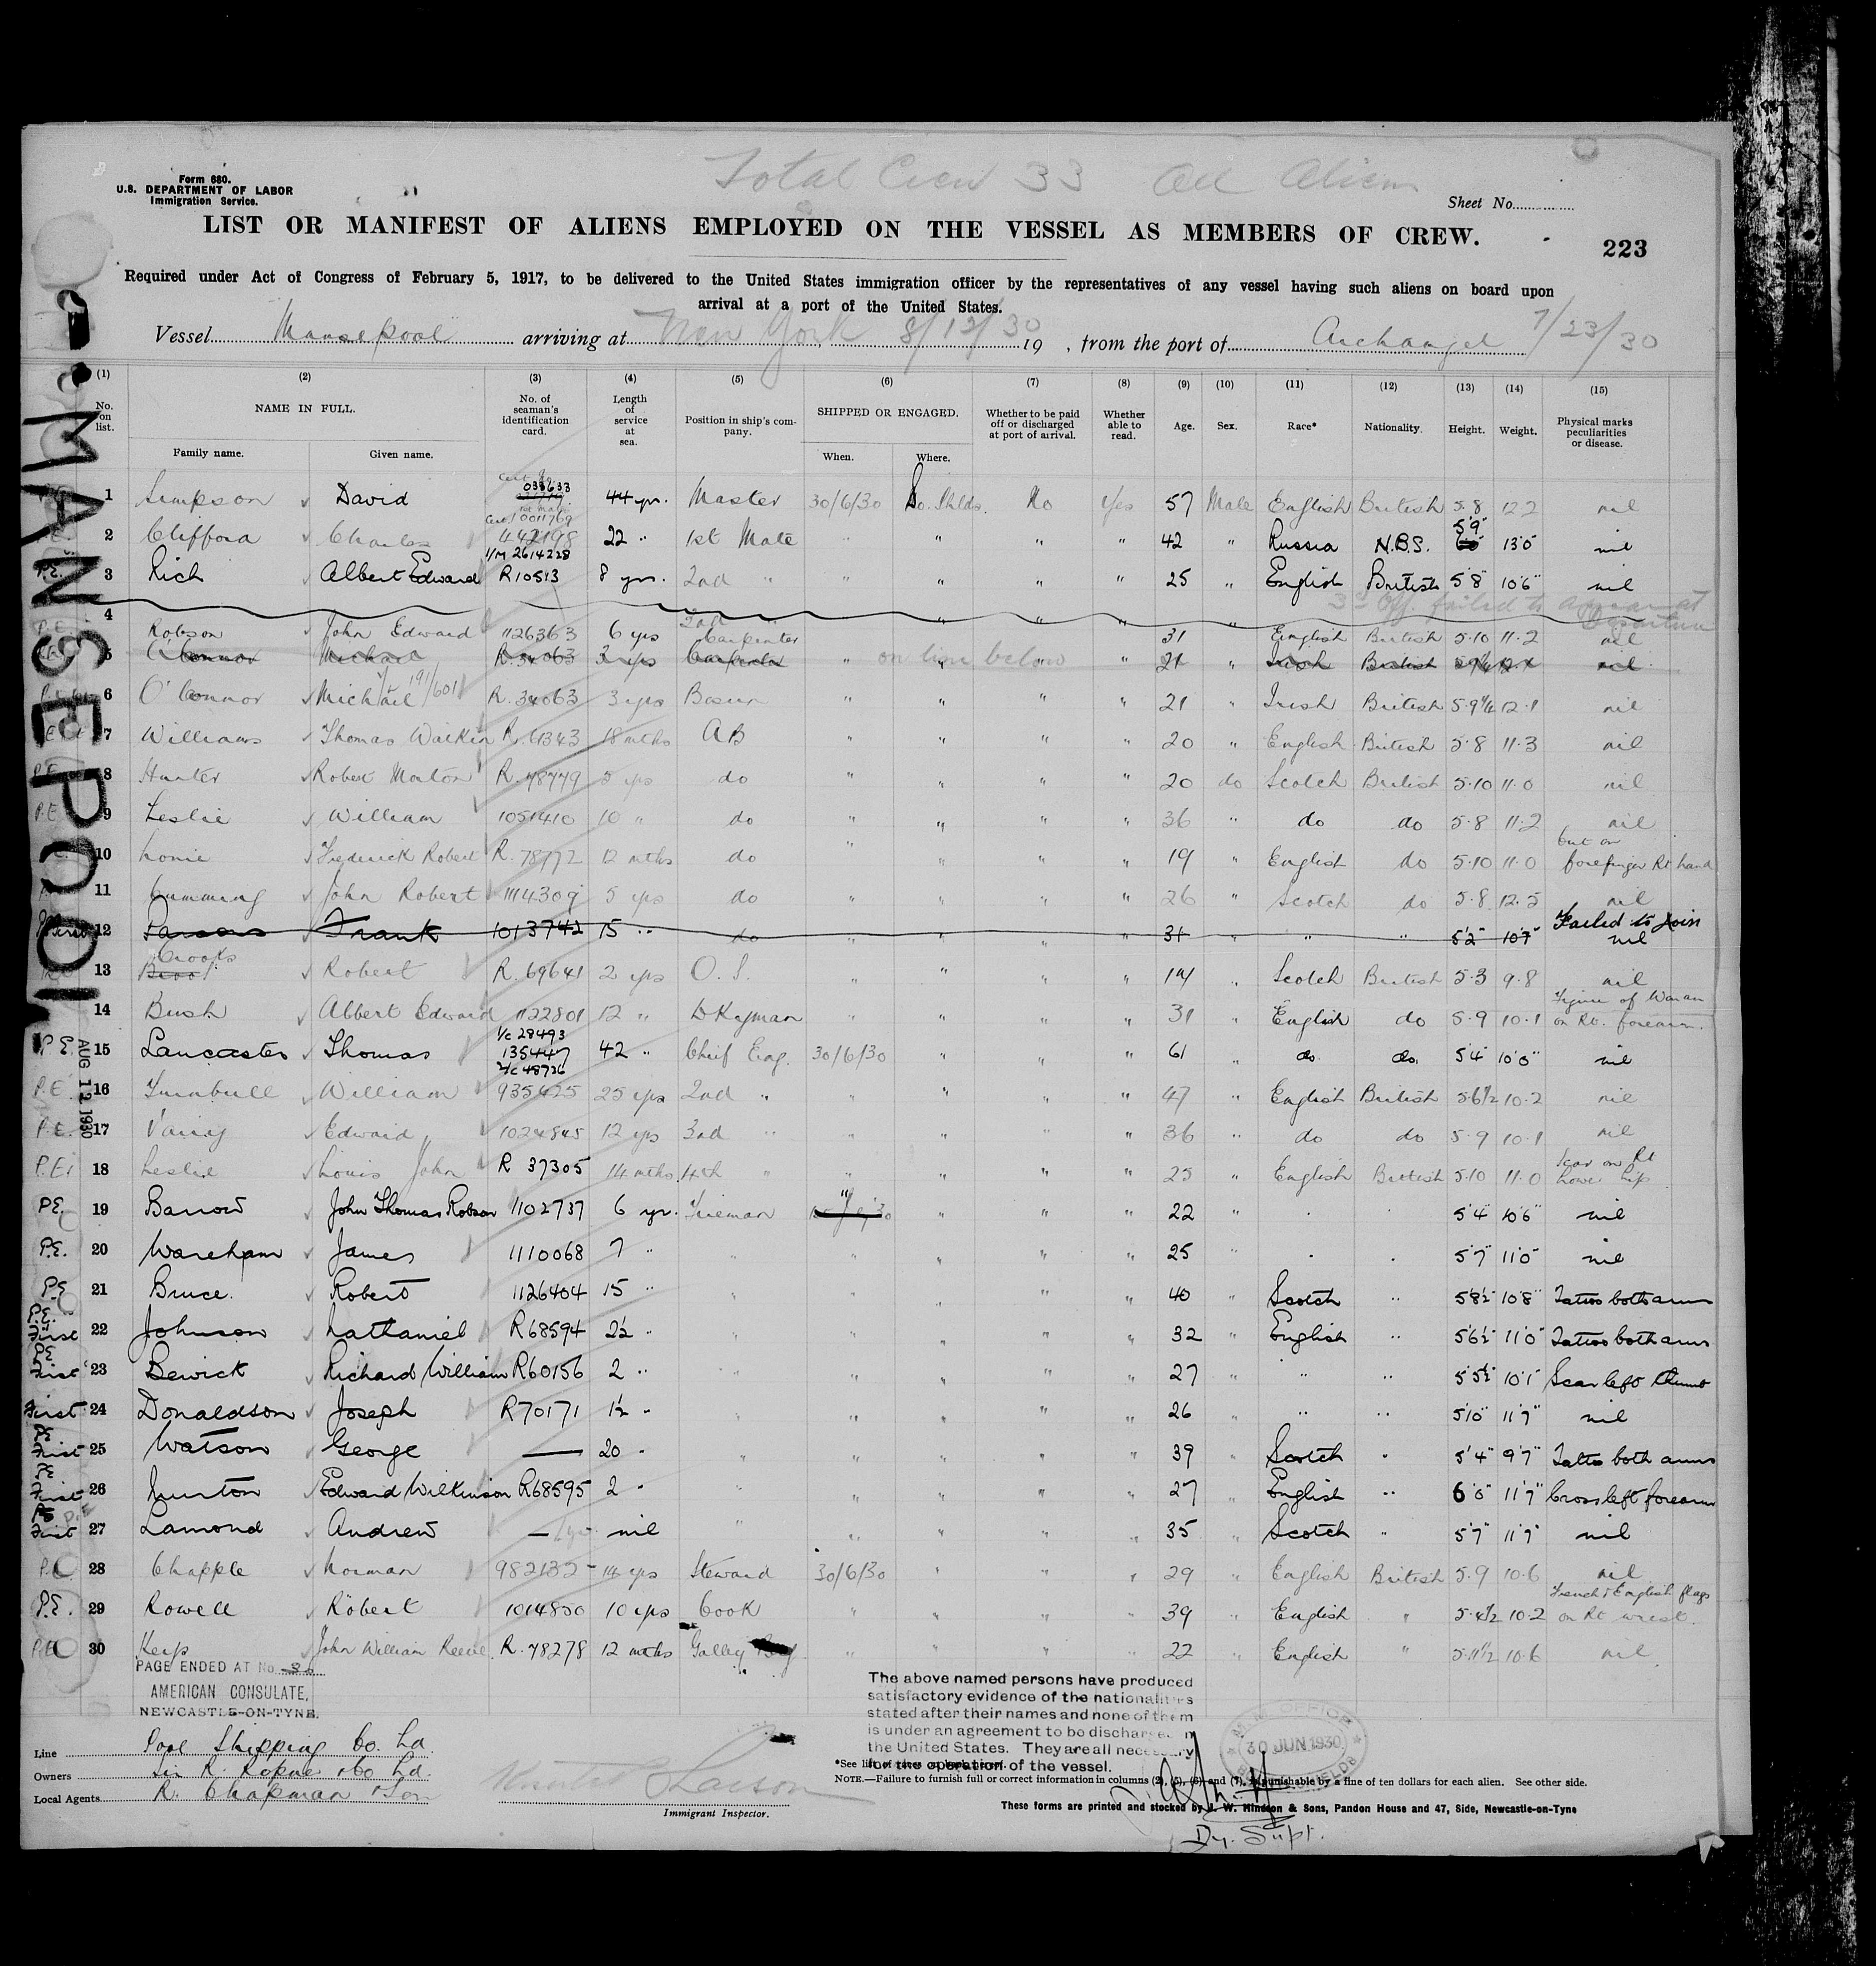 Total Crew 33 All Aliens
Form 680.
U.S. DEPARTMENT OF LABOR
Immigration Service.
Sheet No.
LIST OR MANIFEST OF ALIENS EMPLOYED ON THE VESSEL AS MEMBERS OF CREW.
223
Required under Act of Congress of February 5, 1917, to be delivered to the United States immigration officer by the representatives of any vessel having such aliens on board upon
arrival at a port of the United States.
Vessel Mansepool arriving at New York 8/12/30 19 , from the port of Archangel 7/23/30
MANSEPOOL
AUG 12 1930
(1) (2) (3) (4) (5) (6) (7) (8) (9) (10) (11) (12) (13) (14) (15)
No. on list. NAME IN FULL. No. of seaman's identification card. Length of service at sea. Position in ship's company. SHIPPED OR ENGAGED. Whether to be paid off or discharged at port of arrival. Whether able to read. Age. Sex. Race* Nationality. Height. Weight. Physical marks peculiarities or disease.
Family name. Given name. When. Where.
1 Simpson David 033633 44 yr. Master 30/6/30 So. Shlds. No Yes 57 Male English British 5.8 12.2 nil
2 Clifford Charles 442198 22 " 1st Mate " " " " 42 " Russia N.B.S. 5'9" 13'0" nil
3 Rich Albert Edward I/M 2614228 R10513 8 yrs. 2nd " " " " " 25 " English British 5'8" 10'6" nil
3rd Off. failed to appear at Departure
4 Robson John Edward 1126363 6 yrs Carpenter 31 English British 5.10 11.2 nil
5 O'Connor Michael R.34063 3 yrs Carpenter " on line below " " 21 " Irish British nil
6 O'Connor Michael R.34063 3 yrs Bosun " " " " 21 " Irish British 5.9¼ 12.1 nil
7 Williams Thomas Watkin R.61343 18 mths AB " " " " 20 " English British 5.8 11.3 nil
8 Hunter Robert Morton R.78779 5 yrs do " " " " 20 do Scotch British 5.10 11.0 nil
9 Leslie William 1051410 10 " do " " " " 36 " do do 5.8 11.2 nil
10 Lonie Frederick Robert R.78772 12 mths do " " " " 19 " English do 5.10 11.0 Cut on forefinger Rt hand
11 Cumming John Robert 1114309 5 yrs do " " " " 26 " Scotch do 5.8 12.5 nil
12 Parsons Frank 1013742 15 " do " " " " 31 " " " 5'2" 10'7" Failed to join nil
13 Croots Robert R.69641 2 yrs O.S " " " " 19 " Scotch British 5.3 9.8 nil
14 Bush Albert Edward 1122801 12 " Dkyman " " " " 31 " English do 5.9 10.1 Figure of Woman on Rt. forearm.
15 Lancaster Thomas 1/c 28493 135447 2/c 48726 42 " Chief Eng. 30/6/30 " " " 61 " do do. 5'4" 10'0" nil
16 Turnbull William 935425 25 yrs 2nd " " " " " 47 " English British 5.6½ 10.2 nil
17 Edward 1024845 12 yrs 3rd " " " " " 36 " do do 5.9 10.1 nil
18 Leslie Louis John R 37305 14 mths. 4th " " " " " 25 " English British 5.10 11.0 Scar on Rt
19 Barrow John Thomas Robson 1102737 6 yr. Fireman " " " " 22 " " " 5'4" 10'6" nil
20 Wareham James 1110068 7 " " " " " " 25 " " " 5'7" 11'0" nil
21 Bruce. Robert 1126404 15 " " " " " " 40 " Scotch " 5'8½" 10'8" Tattoo both arms
22 Johnson Nathaniel R68594 2½ " " " " " " 32 " English " 5'6½" 11'0" Tattoo both arms
23 Bewick Richard William R60156 2 " " " " " " 27 " " " 5'5½" 10'1" Scar left thumb
24 Donaldson Joseph R70171 1½ " " " " " " 26 " " " 5'10" 11'7" nil
25 Watson George — 20 " " " " " " 39 " Scotch " 5'4" 9'7" Tattoo both arms
26 Edward Wilkinson R68595 2 " " " " " " 27 " English " 6'0" 11'7" Cross left forearm
27 Lamond Andrew — nil " " " " " 35 " Scotch " 5'7" 11'7" nil
28 Chapple Norman 982132 14 yrs Steward 30/6/30 " " " 29 " English British 5.9 10.6 nil
29 Rowell Robert 1014850 10 yrs Cook " " " " 39 " English " 5.4½ 10.2 French & English flags on Rt wrist.
30 John William Reeve R.78278 12 mths Galley Boy " " " " 22 " English " 5.11½ 10.6 nil
PAGE ENDED AT No.
AMERICAN CONSULATE,
NEWCASTLE-ON-TYNE.
The above named persons have produced
satisfactory evidence of the nationalities
stated after their names and none of them
is under an agreement to be discharged in
the United States. They are all necessary
for the operation of the vessel.
30 JUN 1930
Line Pool Shipping Co. Ld.
Owners Sir R. Ropner & Co Ld.
Local Agents R. Chapman & Son
Immigrant Inspector.
*See list of races
NOTE.—Failure to furnish full or correct information in columns (2), (5), (6) and (7), is punishable by a fine of ten dollars for each alien. See other side.
These forms are printed and stocked by J. W. Hindson & Sons, Pandon House and 47, Side, Newcastle-on-Tyne
Dy. Supt.